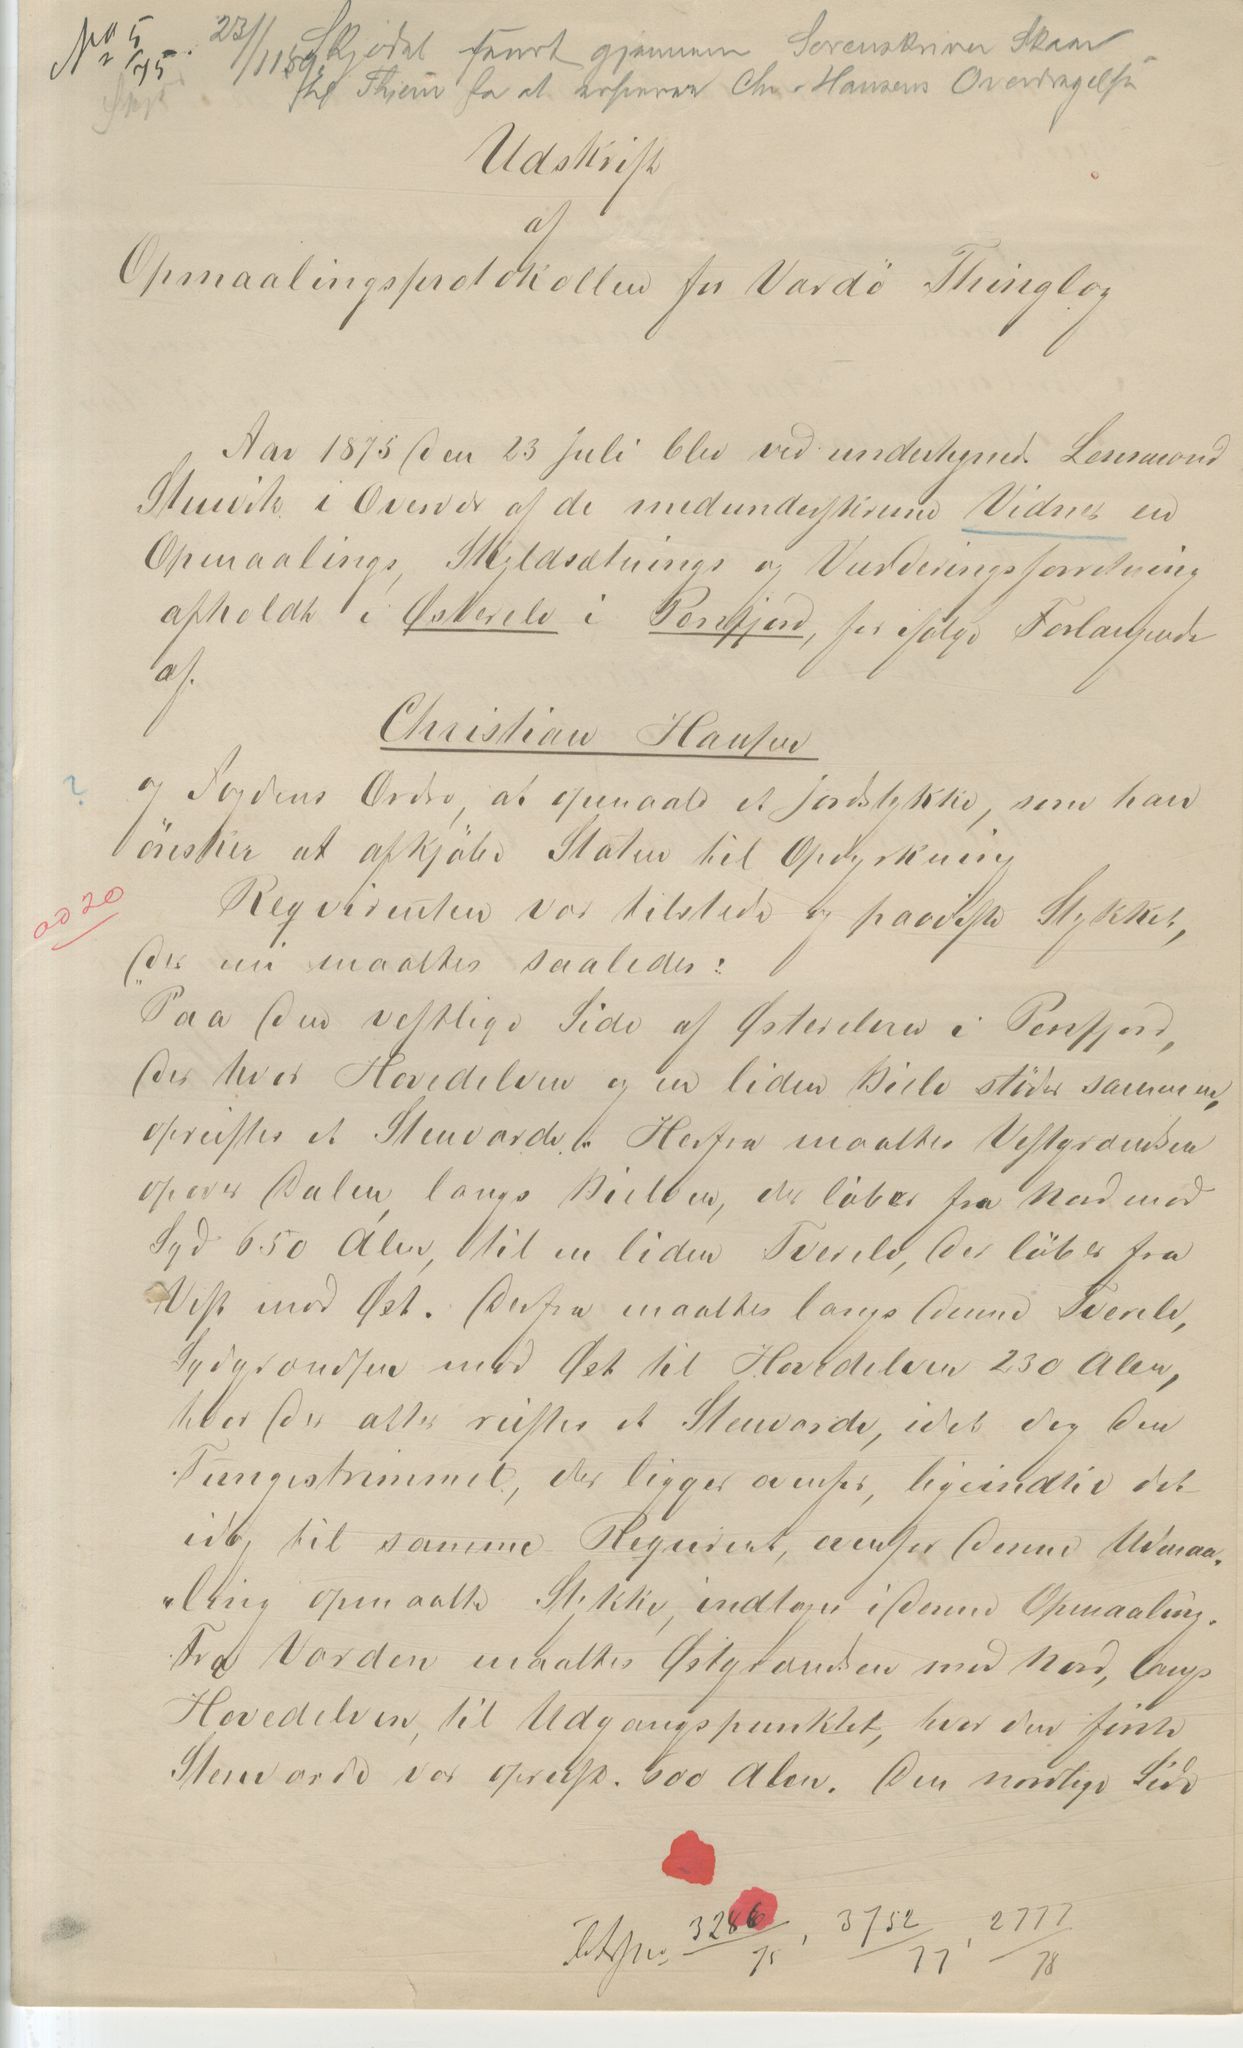 No 5
2/75. 23/11 59. Skjødet sendt gjennem Sorenskriver Skaar
til Thiem for at erhverve Chr. Hansens Overdragelse
Udskrift
af
Opmaalingsprotokollen for Vardö Thinglag
Aar 1875 den 23 Juli blev ved undertegnede Lensmand
Stenvik i Overvær af de medunderskrevne Vidner en
Opmaalings, Skyldsætnings og Vurderingsforretning
afholdt i Østerelv i Persfjord, for ifølge Forlangende
af.
Christian Hansen
og Fogdens Ordre, at opmaale et Jordstykke, som han
önsker at afkjöbe Staten til Opdyrkning
Reqvirenten var tilstede og paaviste Stykket,
2020
?
der nu maaltes saaledes:
"Paa den vestlige Side af Østerelven i Persfjord,
der hvor Hovedelven og en liden Bielv stöder sammen,
opreistes et Stenvarde. Herfra maaltes Vestgrændsen
opover Dalen, langs Bielven, der löber fra Nord mod
Syd 650 Alen, til en liden Tverelv, der löber fra
Vest mod Øst. Derfra maaltes langs denne Tverelv,
Sydgrændsen mod Øst til Hovedelven 230 Alen,
hvor der atter reistes et Stenvarde, idet dog den
Tungestrimmel, der ligger ovenfor, ligeindtil det
idag til samme Reqvirent, ovenfor denne Udmaa-
"ling opmaalte Stykke, indtages i denne Opmaaling.
Fra Varden maaltes Østgrændsen mod Nord, langs
Hovedelven, til Udgangspunktet, hvor den første
Stenvarde var opreist. 600 Alen. Den nordlige Side
3286/75, 3752/77, 2777/78